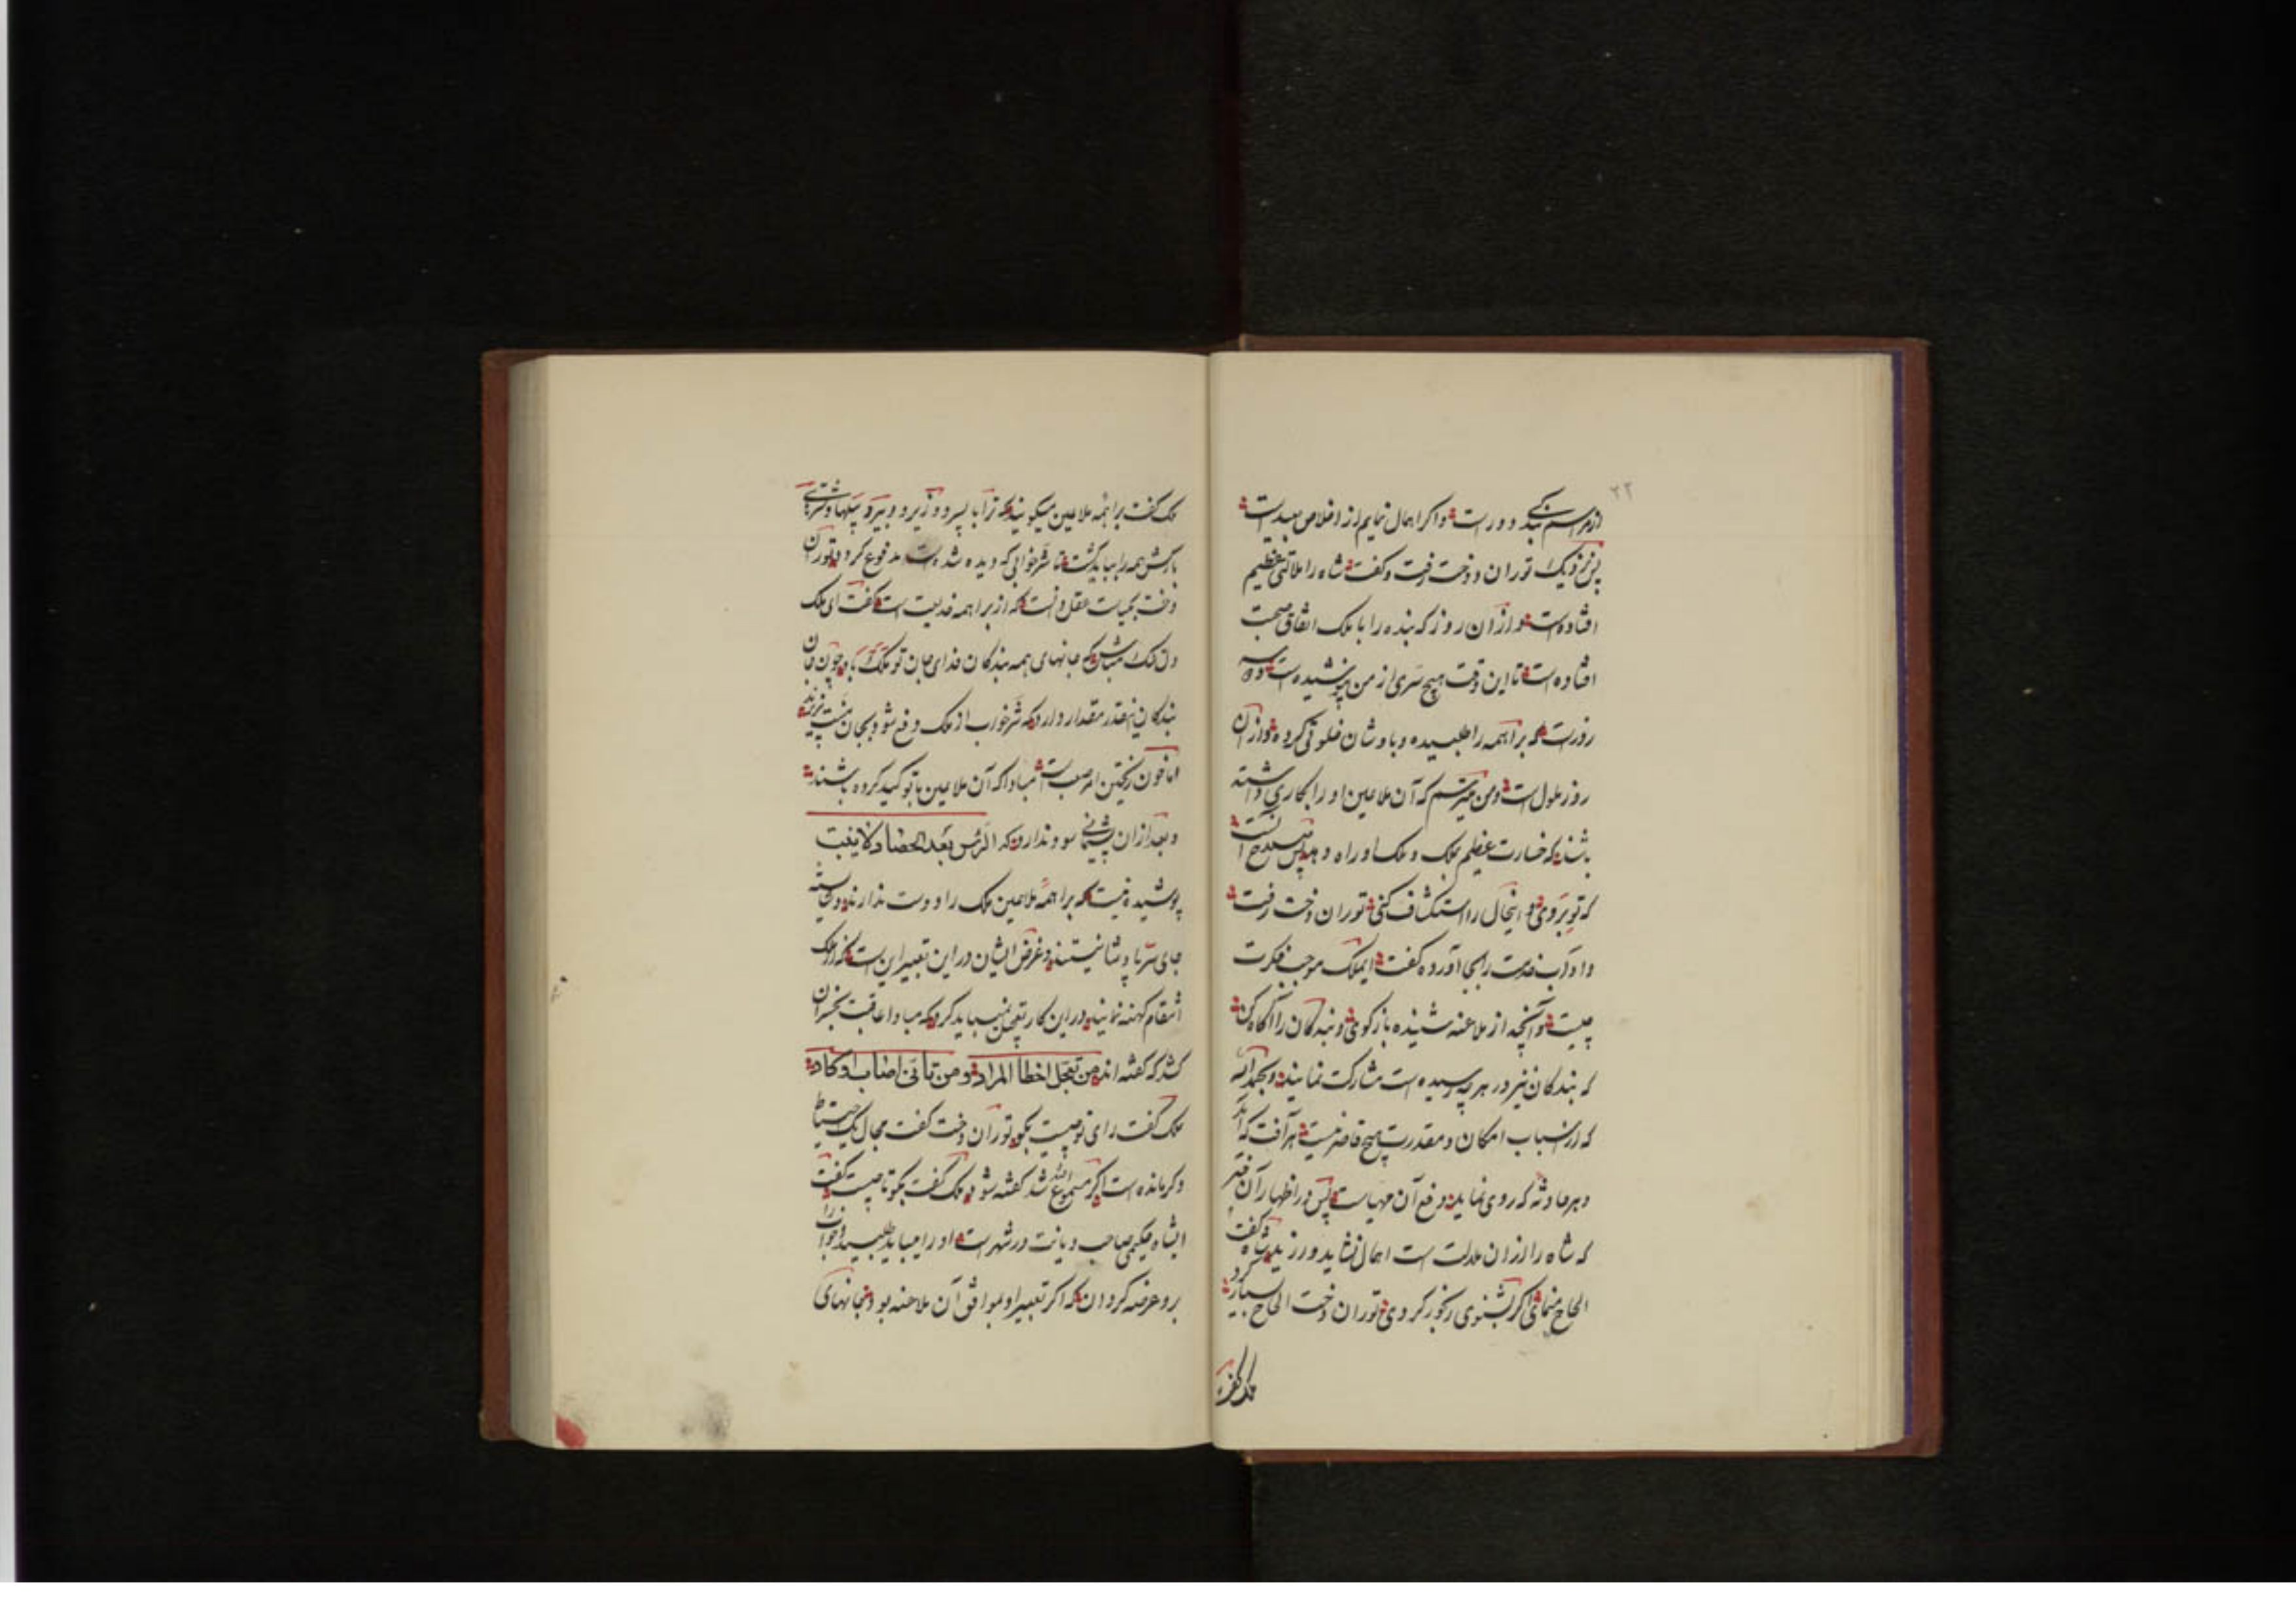 ۲۲
از مراسم بندگی دورست و اگر اهمال نمایم از اخلاص بعیدست
پس نزدیک توران دخت رفت و گفت شاه را ملالتی عظیم
افتاده است و از آن روز که بنده را با ملک اتفاق صحبت
افتاده است تا این وقت هیچ سری از من نپوشیده است
روزست که براهمه را طلبیده و با وشان خلوتی کرده و از آن
روز ملول است و من میترسم که آن ملاعین او را بکاری داشته
باشند که خسارت عظیم بملک و ملک او راه دهد پس صلاح آنست
که تو بروی و اینحال را استکشاف کنی توران دخت رفت
و آداب خدمت را بجا آورده گفت ایملک موجب فکرت
چیست و آنچه از ملاعنه شنیده بازگوی و بندگان را آگاه کن
که بندگان نیز در هر چه رسیده است مشارکت نمایند و بحمد الله
که از اسباب امکان و مقدرت هیچ قاصر نیست هر آفت که آید
و هر حادثه که روی نماید دفع آن مهیاست پس در اظهار آن
که شاه را از آن ملالت است اهمال نشاید ورزید شاه گفت
الحاح منمای اگر بشنوی رنجور گردی توران دخت الحاح بسیار کرد
ملک گفت
ملک گفت براهمه ملاعین میگویند که ترا با پسر و وزیر و دبیر و پیلها و شتر
بارکش همه را بباید کشت تا شر خوابی که دیده شده است مدفوع گردد توران
دخت بکیاست عقل دانست که از براهمه خدیعت است گفت ای ملک
دل تنگ مباش که جانهای همه بندگان فدای جان تو ملک باد چون جان
بندگان اینقدر مقدار دارد که شر خواب از ملک دفع شود بجان منت پذیرند
اما خون ریختن امر صعب است مبادا که آن ملاعین با تو کید کرده باشند
و بعد از آن پشیمانی سود ندارد که الرش بعد الحصاد لا ینبت
پوشیده نیست که براهمه ملاعین ملک را دوست ندارند و شایسته
جای سر پادشا نیستند و غرض ایشان در این تعبیر این است که از ملک
انتقام کهنه نمایند در این کار تعجیل نمیباید کرد که مبادا عاقبت بخسران
کشد که گفته اند من تعجل اخطأ المراد و من تأنی اصاب او کاد
ملک گفت رای تو چیست بگو توران دخت گفت مجال یک احتیاط
دگر مانده است اگر مسموع شاه شد گفته شود ملک گفت بگو تا چیست گفت
ایشاه حکیمی صاحب دیانت در شهر است او را میباید طلبید و خواب را
برو عرضه گردان که اگر تعبیر او بموافق آن ملاعنه بود جانهای